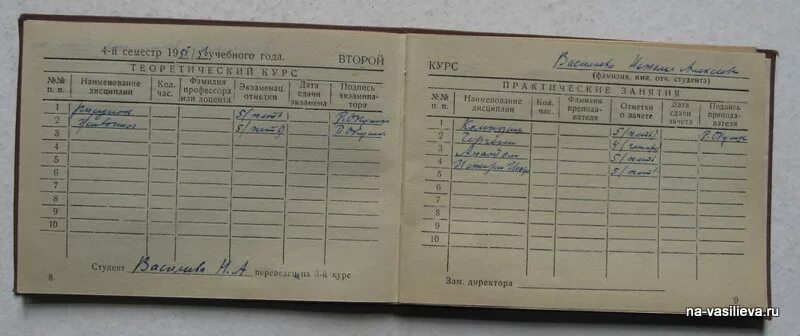 4-й семестр 1955/56 учебного года.
ВТОРОЙ
ТЕОРЕТИЧЕСКИЙ КУРС
№№ п. п.
Наименование дисциплин
Кол. час.
Фамилия профессора или доцента
Экзаменац. отметки
Дата сдачи экзамена
Подпись экзаменатора
1 Рисунок 5/пять/
2 Живопись 5/пять/
3
4
5
6
7
8
9
10
Студент Васильева Н. А переведен на 3-й курс
8
КУРС
Васильева Наталия Алексеевна
(фамилия, имя, отч. студента)
ПРАКТИЧЕСКИЕ ЗАНЯТИЯ
№№ п. п.
Наименование дисциплин
Кол. час.
Фамилия преподавателя
Отметки о зачете
Дата сдачи зачета
Подпись преподавателя
1 5/пять/
2 4/четыре/
3 5/пять/
4 5/пять/
5
6
7
8
9
10
Зам. директора
9
na-vasilieva.ru